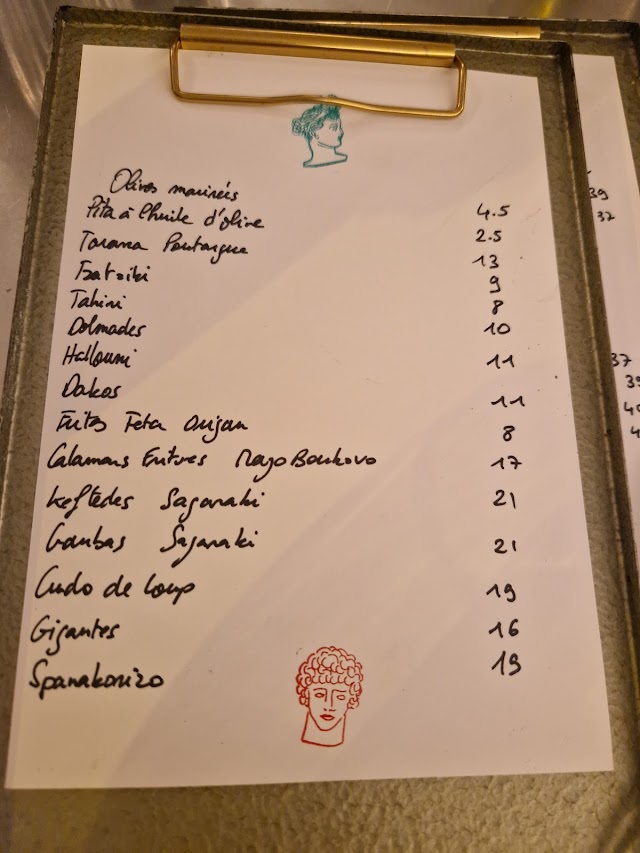 Olives marinées 4.5
Pita à l'huile d'olive 2.5
Tarama Poutargue 13
Tzatziki 9
Tahini 8
Dolmades 10
Halloumi 11
Dakos 11
Frites Feta Origan 8
Calamars Fritures Mayo Boukovo 17
Keftedes Saganaki 21
Gambas Saganaki 21
Crudo de loup 19
Gigantes 16
Spanakorizo 19
39
37
37